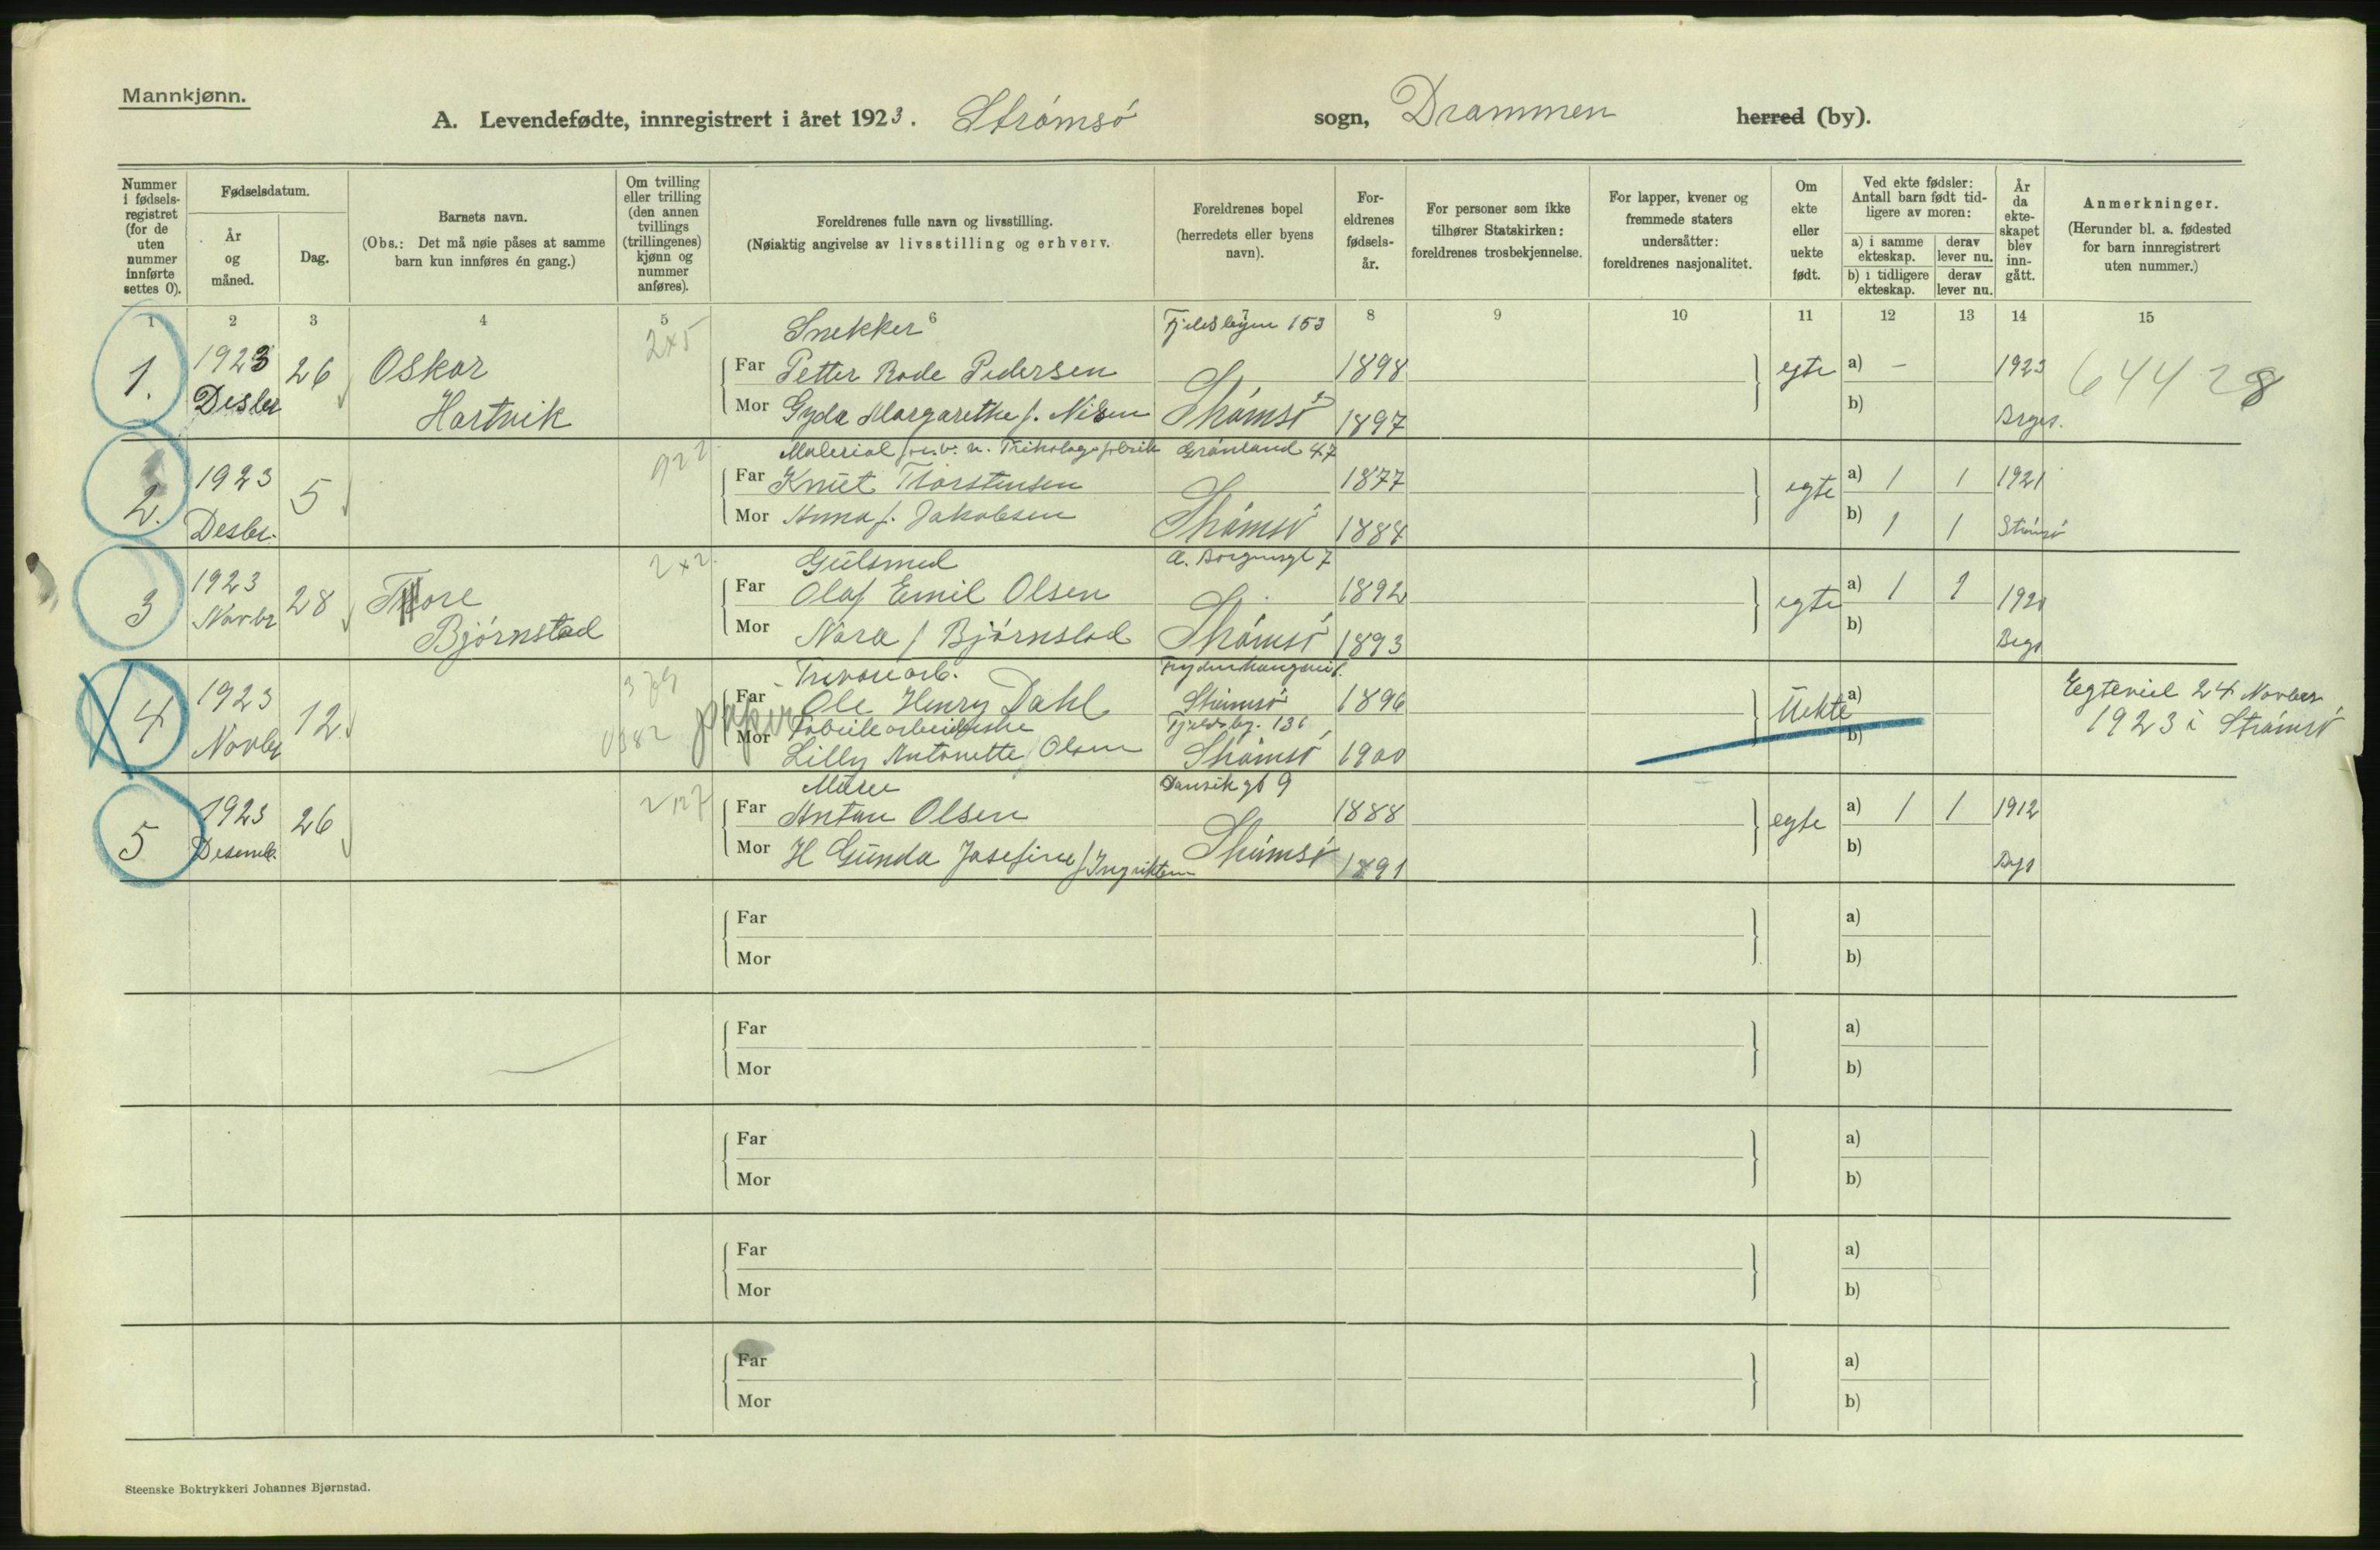 Mannkjønn.
A. Levendefødte, innregistrert i året 1923. Strømsø sogn, Drammen herred (by).
Nummer i fødselsregistret (for de uten nummer innførte settes 0).
Fødselsdatum.
År og måned.
Dag.
Barnets navn.
(Obs.: Det må nøie påses at samme barn kun innføres én gang.)
Om tvilling eller trilling (den annen tvillings (trillingenes) kjønn og nummer anføres).
Foreldrenes fulle navn og livsstilling.
(Nøiaktig angivelse av livsstilling og erhverv.
Foreldrenes bopel (herredets eller byens navn).
Foreldrenes fødselsår.
For personer som ikke tilhører Statskirken: foreldrenes trosbekjennelse.
For lapper, kvener og fremmede staters undersåtter: foreldrenes nasjonalitet.
Om ekte eller uekte født.
Ved ekte fødsler: Antall barn født tidligere av moren:
a) i samme ekteskap.
derav lever nu.
b) i tidligere ekteskap.
derav lever nu.
År da ekteskapet blev inngått.
Anmerkninger.
(Herunder bl. a. fødested for barn innregistrert uten nummer.)
1 2 3 4 5 6 8 9 10 11 12 13 14 15
2x5 Snekker 153
1. 1923 26 Oskar Far Petter Rode Pedersen 1898 egte a) - 1923 64428
Desbr Hartvik Mor Gyda Margarethe f. Nilsen Strømsø 1897 b)
922 Grønland 47
2. 1923 5 Far Knut Thorstensen 1877 egte a) 1 1 1921
Desbr. Mor Anna f. Jakobsen Strømsø 1884 b) 1 1 Strømsø
2x2 Gulsmed 7
3 1923 28 Tore Far Olaf Emil Olsen 1892 egte a) 1 1 1920
Novbr Bjørnstad Mor Nora f Bjørnstad Strømsø 1893 b)
Trevarearb.
4 1923 12 Far Ole Henry Dahl Strømsø 1896 Uekte a) Egteviet 24 Novber
papir Fabrikarbeiderske 136
Novbr Mor Lilly Antonette Olsen Strømsø 1900 b) 1923 i Strømsø
Murer Dansvik gt 9
5 1923 26 Far Anton Olsen 1888 egte a) 1 1 1912
Desemb. Mor H Gunda Josefine f Ingvriktsen Strømsø 1891 b)
Far a)
Mor b)
Far a)
Mor b)
Far a)
Mor b)
Far a)
Mor b)
Far a)
Mor b)
Steenske Boktrykkeri Johannes Bjørnstad.